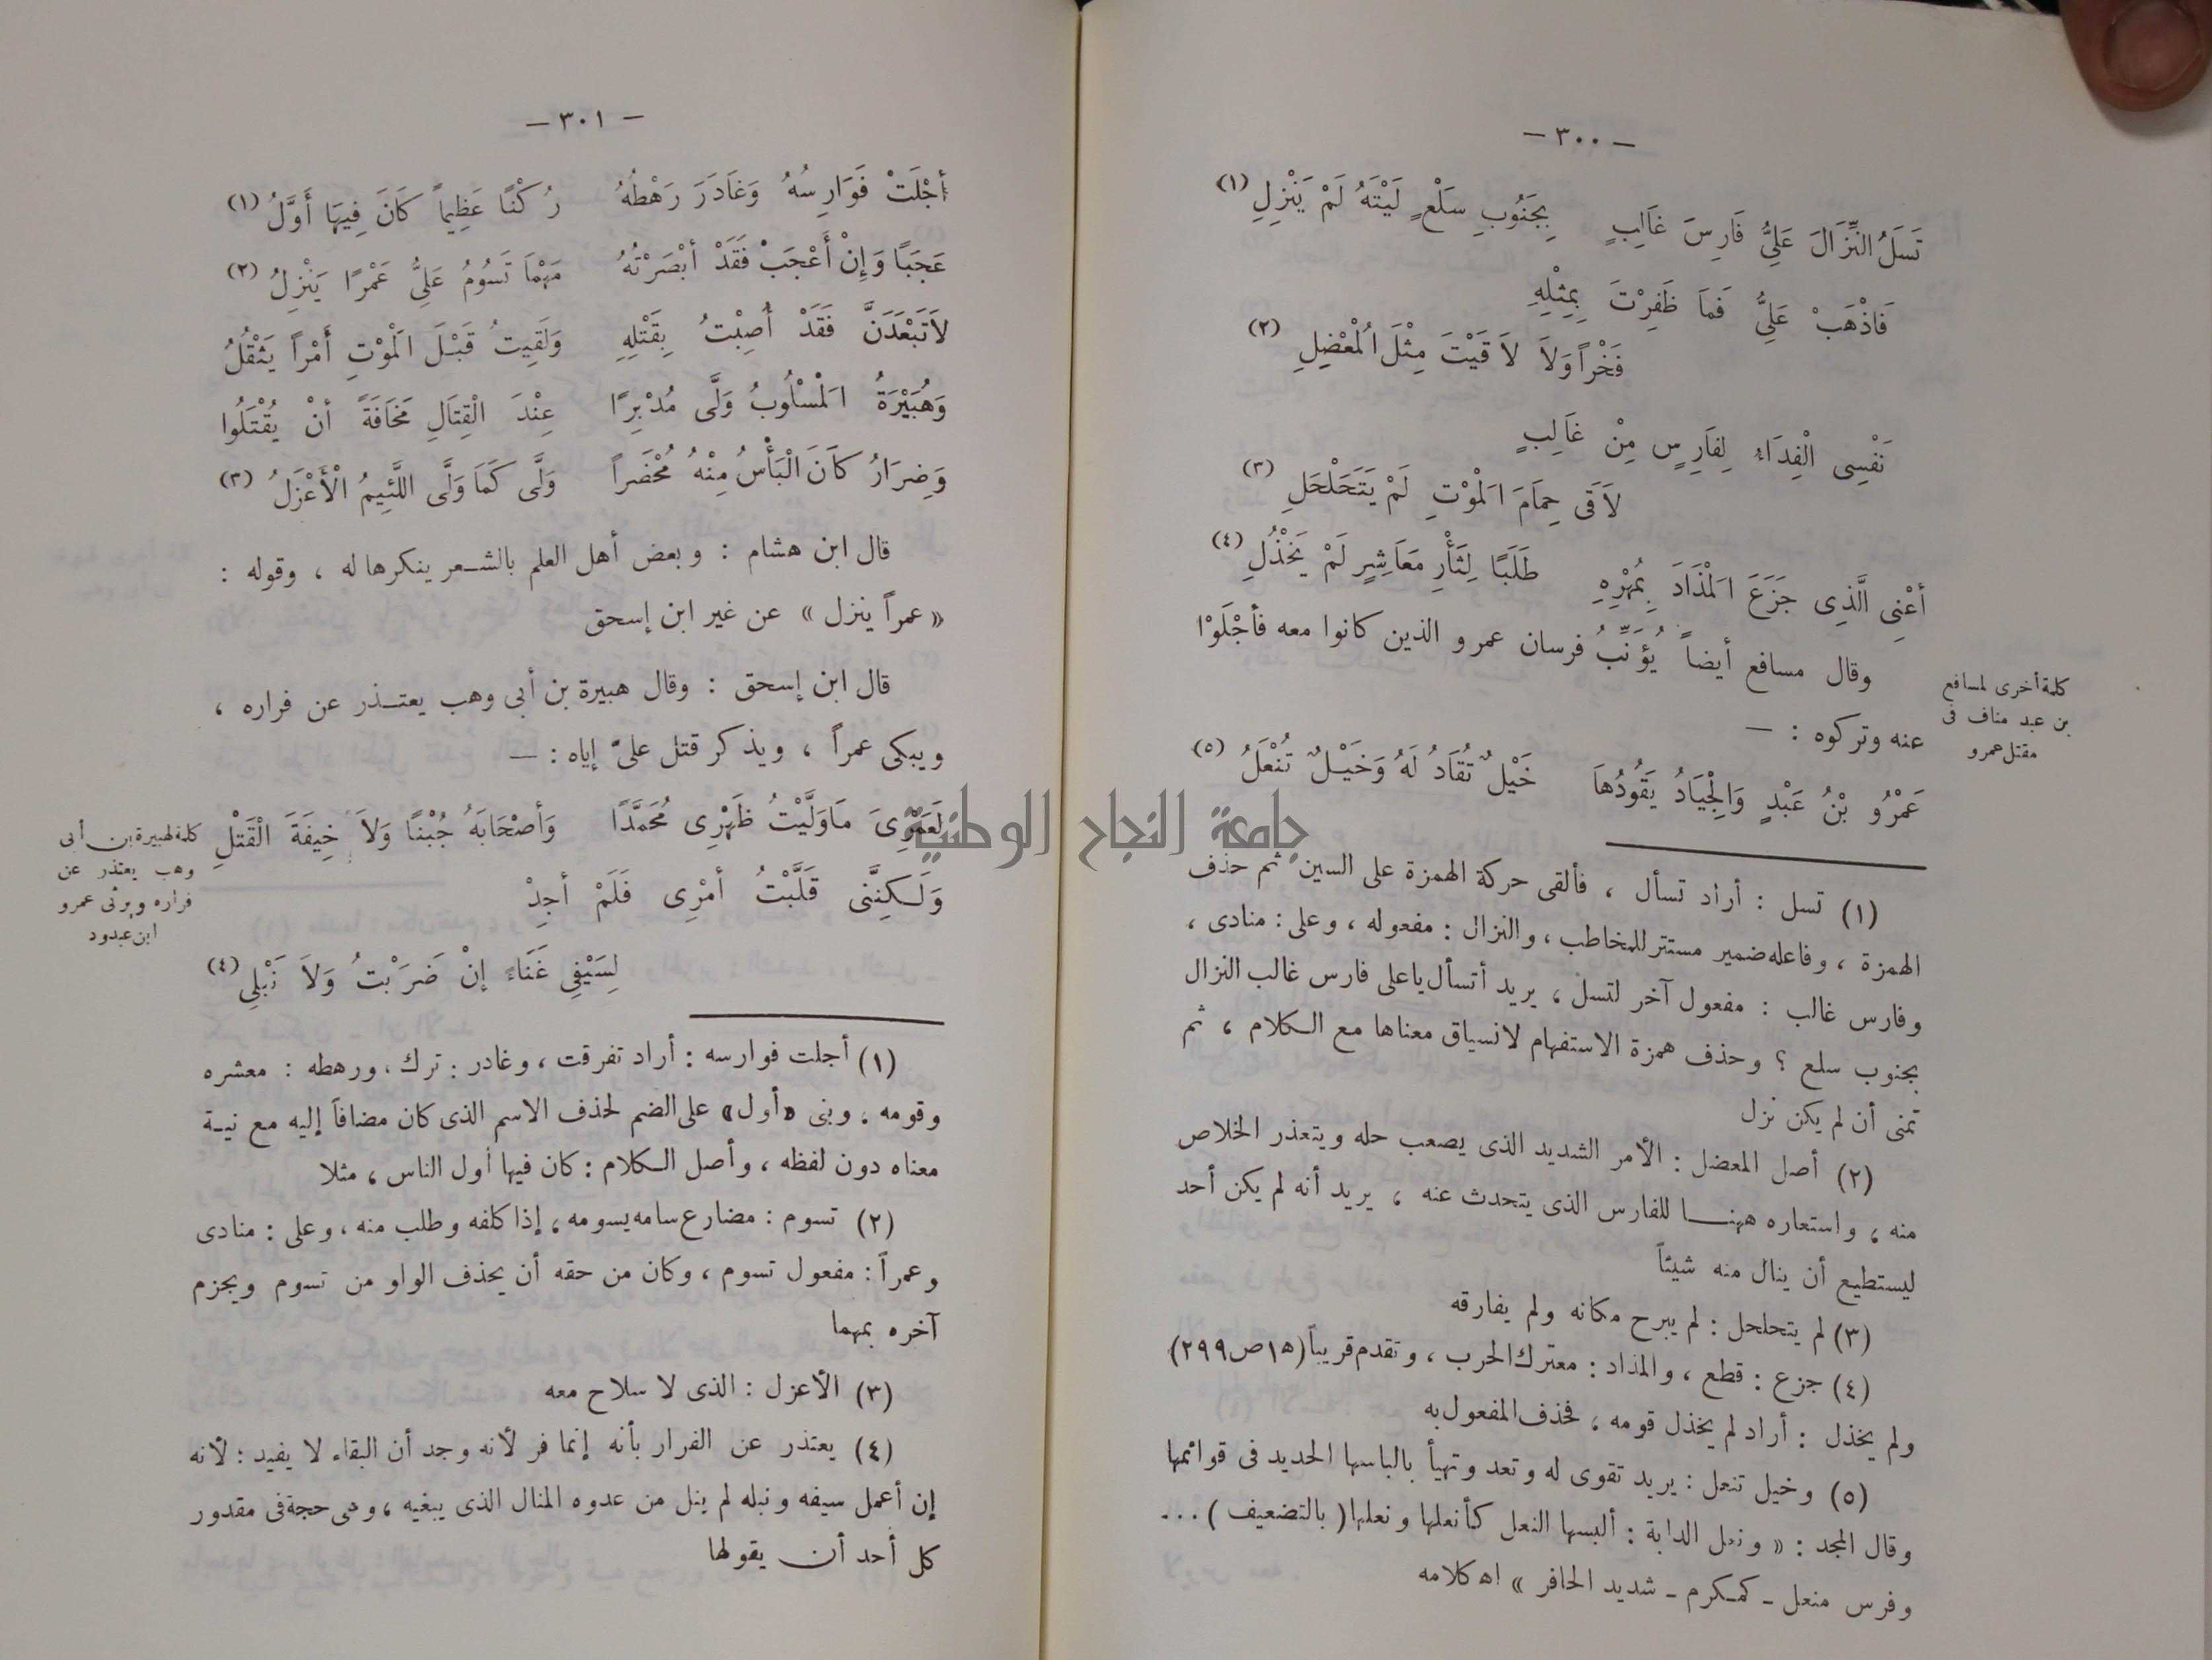 — ٣٠٠ —
تَسَلُ النِّزَالَ عَلِيُّ فَارِسَ غَالِبٍ بِجَنُوبِ سَلْعٍ لَيْتَهُ لَمْ يَنْزِلِ (١)
فَاذْهَبْ عَلِيُّ فَمَا ظَفِرْتَ بِمِثْلِهِ
فَخْراً وَلاَ لاَقَيْتَ مِثْلَ الْمُعْضِلِ (٢)
نَفْسِى الْفِدَاءُ لِفَارِسٍ مِنْ غَالِبٍ
لاَقَى حِمَامَ الْمَوْتِ لَمْ يَتَحَلْحَلِ (٣)
أَعْنِى الَّذِى جَزَعَ الْمَذَادَ بِمُهْرِهِ طَلَبًا لِثَأْرِ مَعَاشِرٍ لَمْ يَخْذُلِ (٤)
وقال مسافع أيضاً يُؤَنِّبُ فرسان عمرو الذين كانوا معه فأَجْلَوْا
عنه وتركوه : —
كلمة أخرى لمسافع
بن عبد مناف فى
مقتل عمرو
عَمْرُو بْنُ عَبْدٍ وَالْجِيَادُ يَقُودُهَا خَيْلٌ تُقَادُ لَهُ وَخَيْلٌ تُنْعَلُ (٥)
(١) تسل : أراد تسأل ، فألقى حركة الهمزة على السين ثم حذف
الهمزة ، وفاعله ضمير مستتر للمخاطب ، والنزال : مفعوله ، وعلى : منادى ،
وفارس غالب : مفعول آخر لتسل ، يريد أتسأل ياعلى فارس غالب النزال
بجنوب سلع ؟ وحذف همزة الاستفهام لانسياق معناها مع الكلام ، ثم
تمنى أن لم يكن نزل
(٢) أصل المعضل : الأمر الشديد الذى يصعب حله ويتعذر الخلاص
منه ، واستعاره ههنا للفارس الذى يتحدث عنه ، يريد أنه لم يكن أحد
ليستطيع أن ينال منه شيئاً
(٣) لم يتحلحل : لم يبرح مكانه ولم يفارقه
(٤) جزع : قطع ، والمذاد : معترك الحرب ، وتقدم قريباً (ه١ص٢٩٩)
ولم يخذل : أراد لم يخذل قومه ، فحذف المفعول به
(٥) وخيل تنعل : يريد تقوى له وتعد وتهيأ بالباسها الحديد فى قوائمها
وقال المجد : « ونعل الدابة : ألبسها النعل كأنعلها ونعلها ( بالتضعيف ) ...
وفرس منعل - كمكرم - شديد الحافر » اه كلامه
— ٣٠١ —
أَجْلَتْ فَوَارِسُهُ وَغَادَرَ رَهْطُهُ رُكْنًا عَظِيماً كَانَ فِيهَا أَوَّلُ (١)
عَجَبًا وَإِنْ أَعْجَبْ فَقَدْ أَبْصَرْتُهُ مَهْمَا تَسُومُ عَلِيُّ عَمْرًا يَنْزِلُ (٢)
لاَتَبْعَدَنَّ فَقَدْ أُصِبْتُ بِقَتْلِهِ وَلَقِيتُ قَبْلَ الْمَوْتِ أَمْراً يَثْقُلُ
وَهُبَيْرَةُ الْمَسْلُوبُ وَلَّى مُدْبِرًا عِنْدَ الْقِتَالِ مَخَافَةً أَنْ يُقْتَلُوا
وَضِرَارُ كَانَ الْبَأْسُ مِنْهُ مُحْضَراً وَلَّى كَمَا وَلَّى اللَّئِيمُ الْأَعْزَلُ (٣)
قال ابن هشام : وبعض أهل العلم بالشعر ينكرها له ، وقوله :
« عمراً ينزل » عن غير ابن إسحق
قال ابن إسحق : وقال هبيرة بن أبى وهب يعتذر عن فراره ،
ويبكى عمراً ، ويذكر قتل علىّ إياه : —
كلمة لهبيرة بن أبى
وهب يعتذر عن
فراره ويرثى عمرو
ابن عبدود
لَعَمْرِى مَا وَلَّيْتُ ظَهْرِى مُحَمَّدًا وَأَصْحَابَهُ جُبْنًا وَلاَ خِيفَةَ الْقَتْلِ
جامعة النجاح الوطنية
وَلَكِنَّنِى قَلَّبْتُ أَمْرِى فَلَمْ أَجِدْ
لِسَيْفِى غَنَاءً إِنْ ضَرَبْتُ وَلاَ نَبْلِى (٤)
(١) أجلت فوارسه : أراد تفرقت ، وغادر : ترك ، ورهطه : معشره
وقومه . وبنى «أول» على الضم لحذف الاسم الذى كان مضافاً إليه مع نية
معناه دون لفظه ، وأصل الكلام : كان فيها أول الناس ، مثلا
(٢) تسوم : مضارع سامه يسومه ، إذا كلفه وطلب منه ، وعلى : منادى
وعمراً : مفعول تسوم ، وكان من حقه أن يحذف الواو من تسوم ويجزم
آخره بمهما
(٣) الأعزل : الذى لا سلاح معه
(٤) يعتذر عن الفرار بأنه إنما فر لأنه وجد أن البقاء لا يفيد : لأنه
إن أعمل سيفه ونبله لم ينل من عدوه المنال الذى يبغيه ، وهى حجة فى مقدور
كل أحد أن يقولها